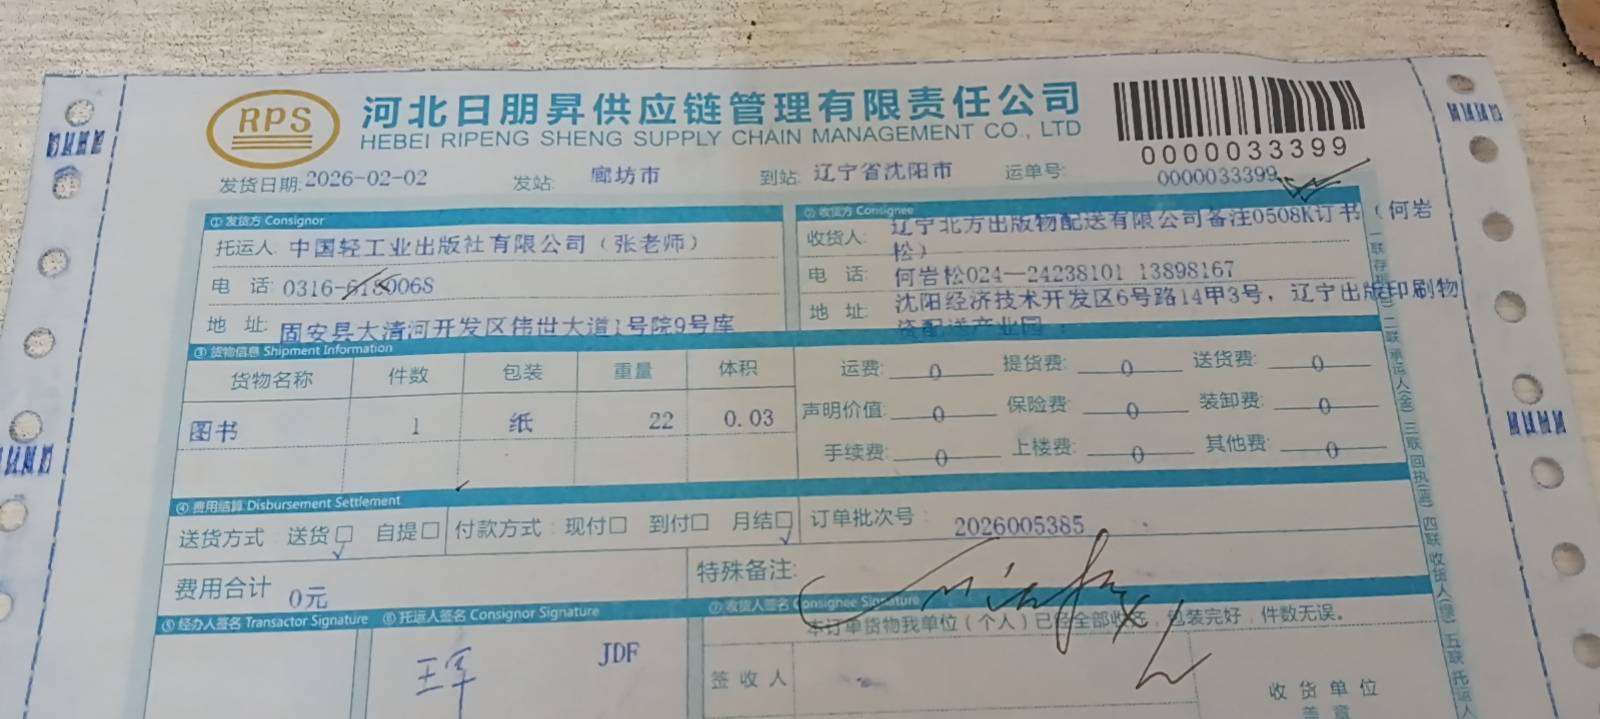 RPS
河北日朋昇供应链管理有限责任公司
HEBEI RIPENG SHENG SUPPLY CHAIN MANAGEMENT CO., LTD
0000033399
发货日期:2026-02-02 发站: 廊坊市 到站: 辽宁省沈阳市 运单号: 0000033399
① 发货方 Consignor
托运人: 中国轻工业出版社有限公司（张老师）
电 话: 0316-6180068
地 址: 固安县大清河开发区伟世大道1号院9号库
② 收货方 Consignee
收货人: 辽宁北方出版物配送有限公司备注0508K订书（何岩
松）
电 话: 何岩松024—24238101 13898167
地 址: 沈阳经济技术开发区6号路14甲3号，辽宁出版印刷物
资配送产业园
③ 货物信息 Shipment Information
货物名称 件数 包装 重量 体积
图书 1 纸 22 0.03
运费: 0 提货费: 0 送货费: 0
声明价值: 0 保险费: 0 装卸费: 0
手续费: 0 上楼费: 0 其他费: 0
④ 费用结算 Disbursement Settlement
送货方式 送货□ 自提□ 付款方式: 现付□ 到付□ 月结□ 订单批次号: 2026005385
费用合计 0元
特殊备注:
⑤ 经办人签名 Transactor Signature
⑥ 托运人签名 Consignor Signature
王军 JDF
⑦ 收货人签名 Consignee Signature
本订单货物我单位（个人）已经全部收讫，包装完好，件数无误。
签 收 人
收 货 单 位
盖 章
一联存根(白) 二联承运人(金) 三联回执(蓝) 四联收货人(绿) 五联托运人